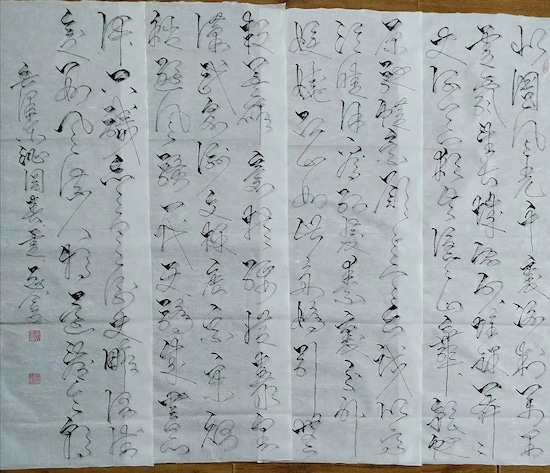 北国风光千里冰封万里
雪飘望长城内外惟余莽莽
大河上下顿失滔滔山舞银蛇
原驰蜡象欲与天公试比高
须晴日看红装素裹分外
妖娆江山如此多娇引无
数英雄竞折腰惜秦皇
汉武略输文采唐宗宋祖
稍逊风骚一代天骄成吉思
汗只识弯弓射大雕俱往
矣数风流人物还看今朝
毛泽东沁园春雪